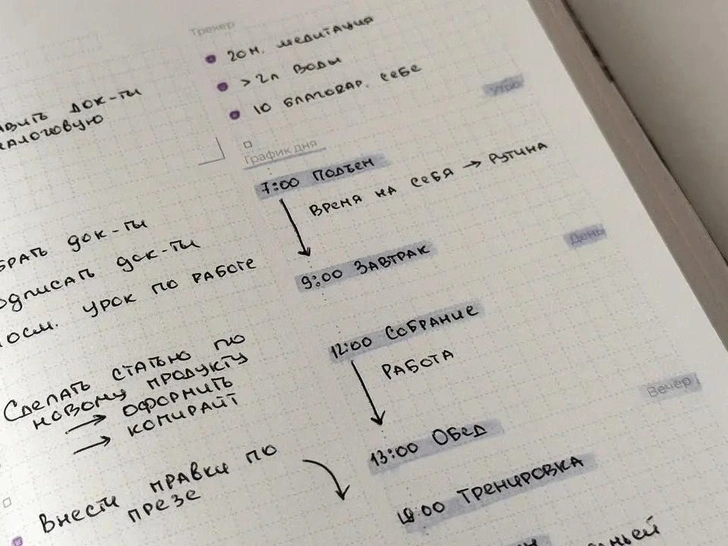 Трекер
20 м. медитация
> 2л воды
10 благодар. себе
док-ты
налоговую
Утро
График дня
7:00 Подъем
Время на себя → рутина
док-ты
док-ты
урок по работе
День
9:00 Завтрак
12:00 Собрание
Работа
Сделать статью по
новому продукту
→ оформить
→ копирайт
Вечер
13:00 Обед
Внести правки по
презе
18:00 Тренировка